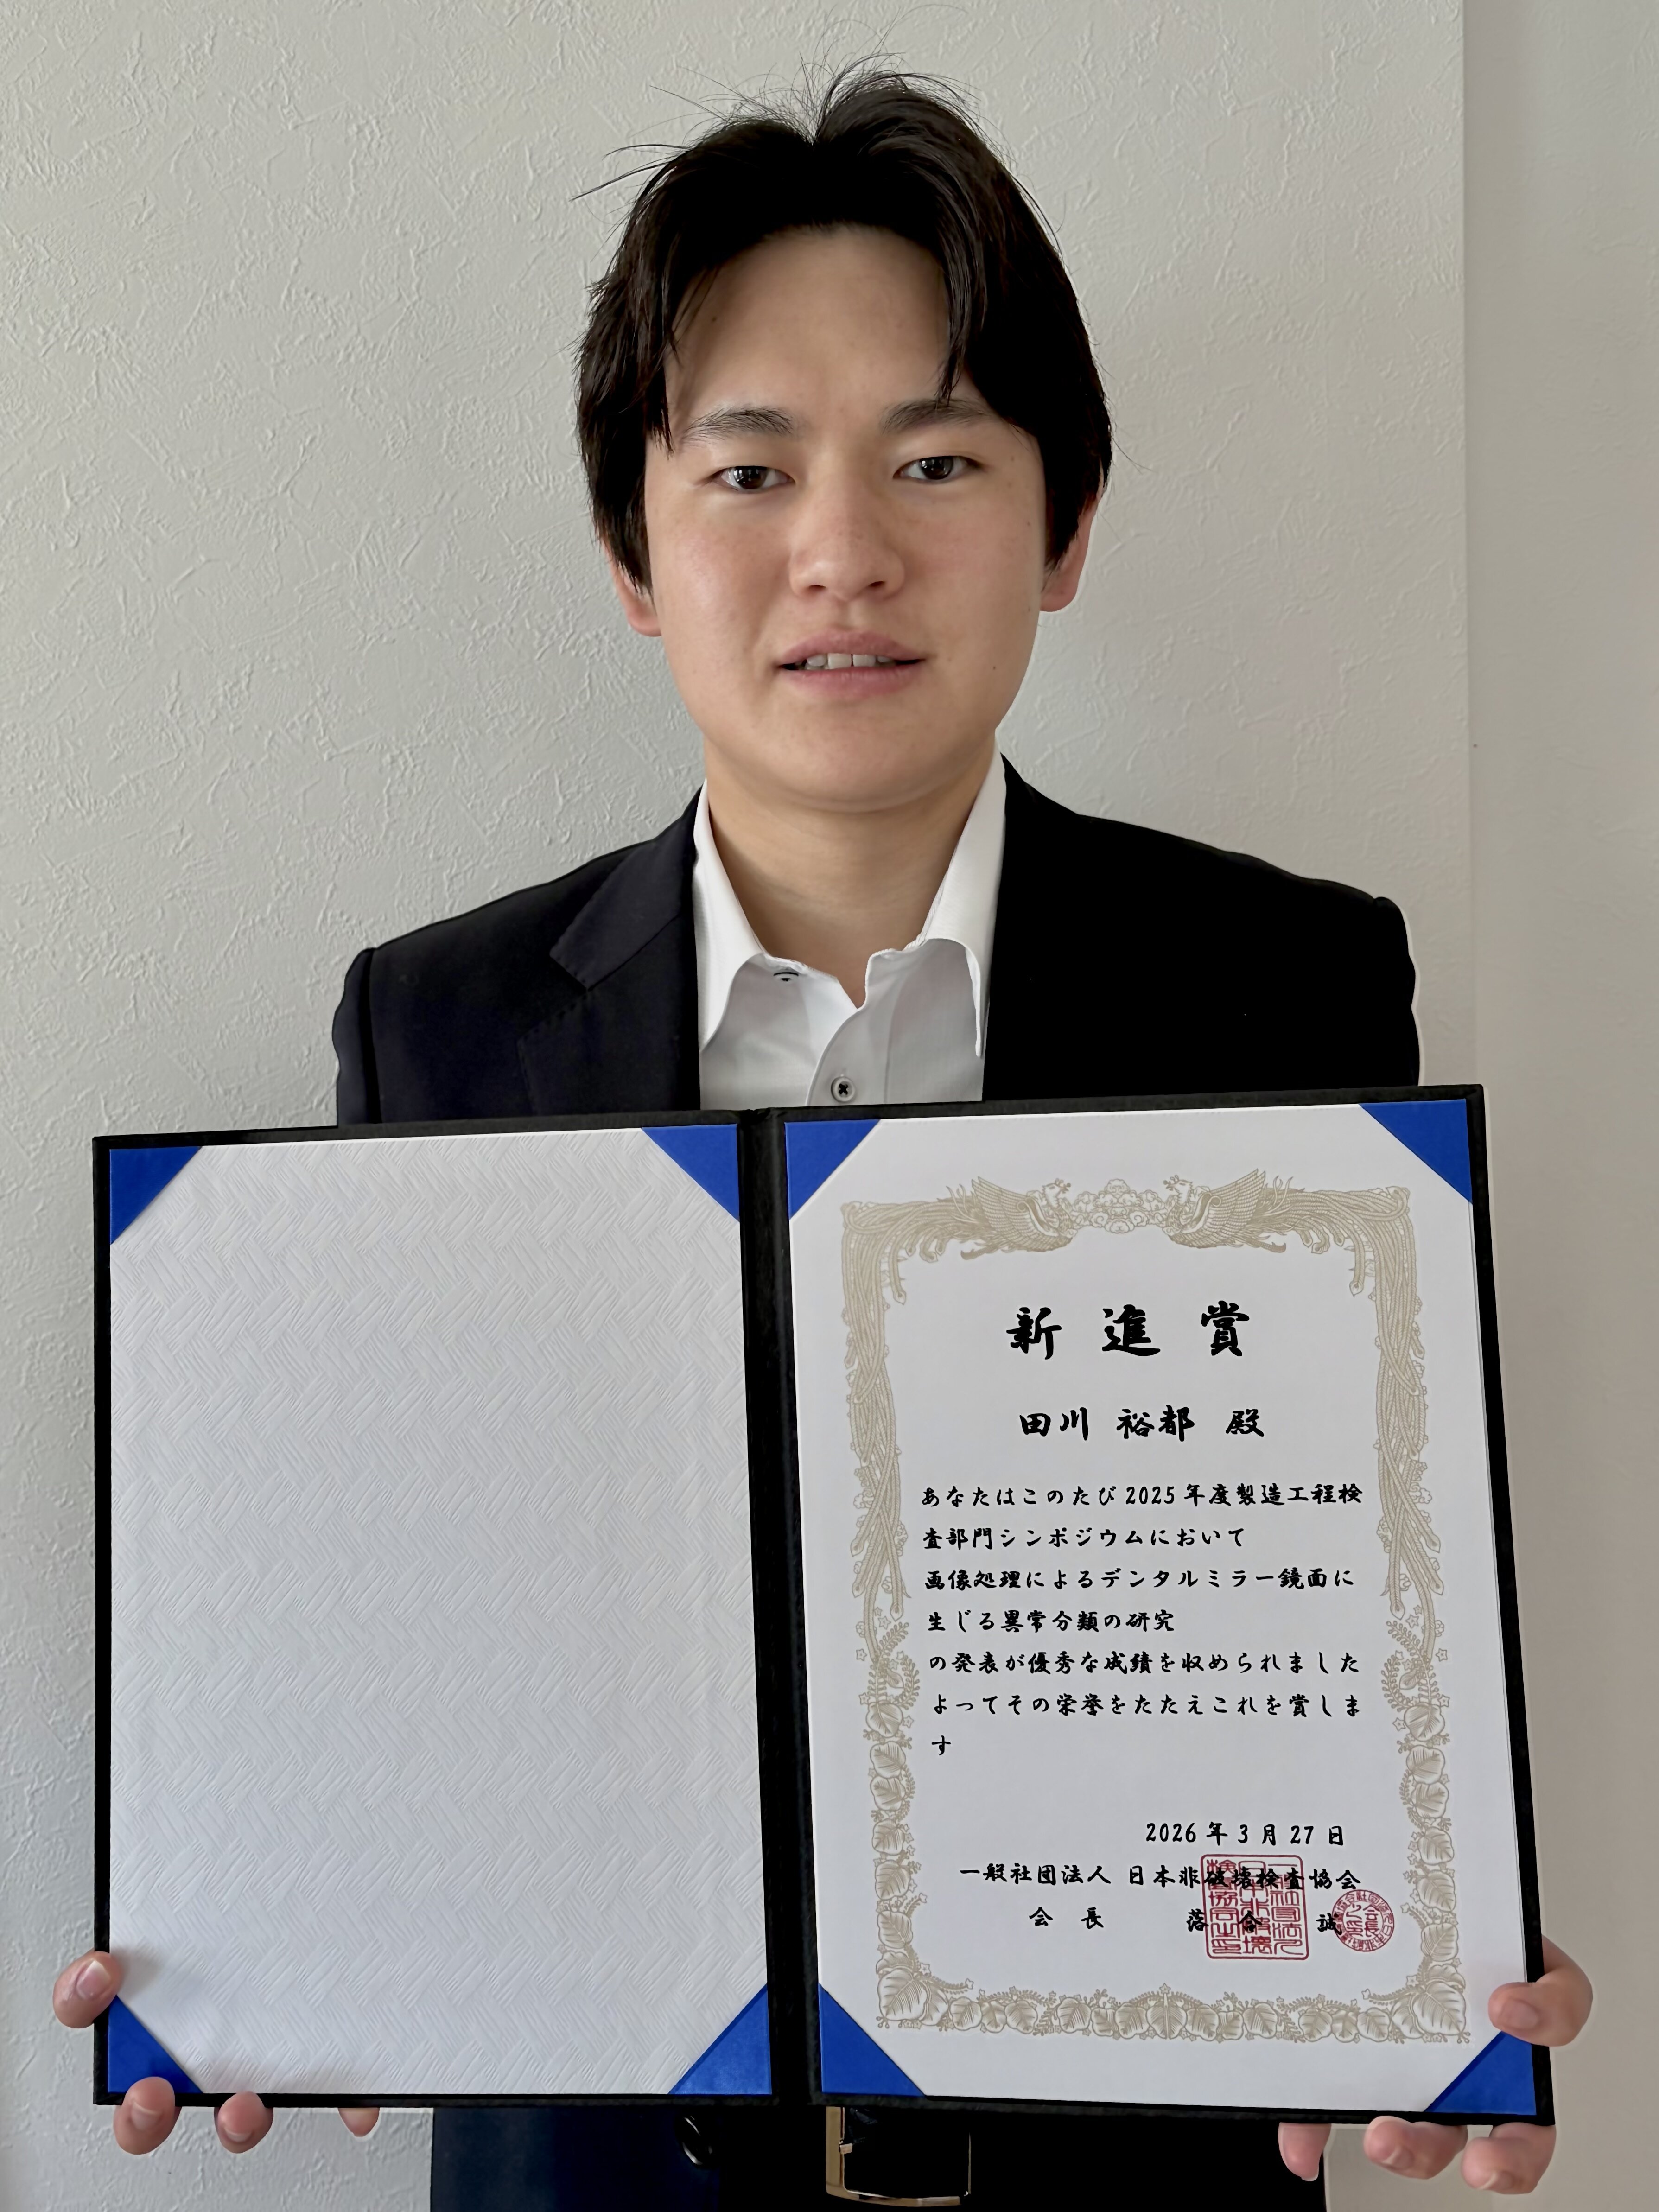 新進賞
田川 裕都 殿
あなたはこのたび2025年度製造工程検
査部門シンポジウムにおいて
画像処理によるデンタルミラー鏡面に
生じる異常分類の研究
の発表が優秀な成績を収められました
よってその栄誉をたたえこれを賞しま
す
2026年3月27日
一般社団法人 日本非破壊検査協会
会 長 落 合 誠